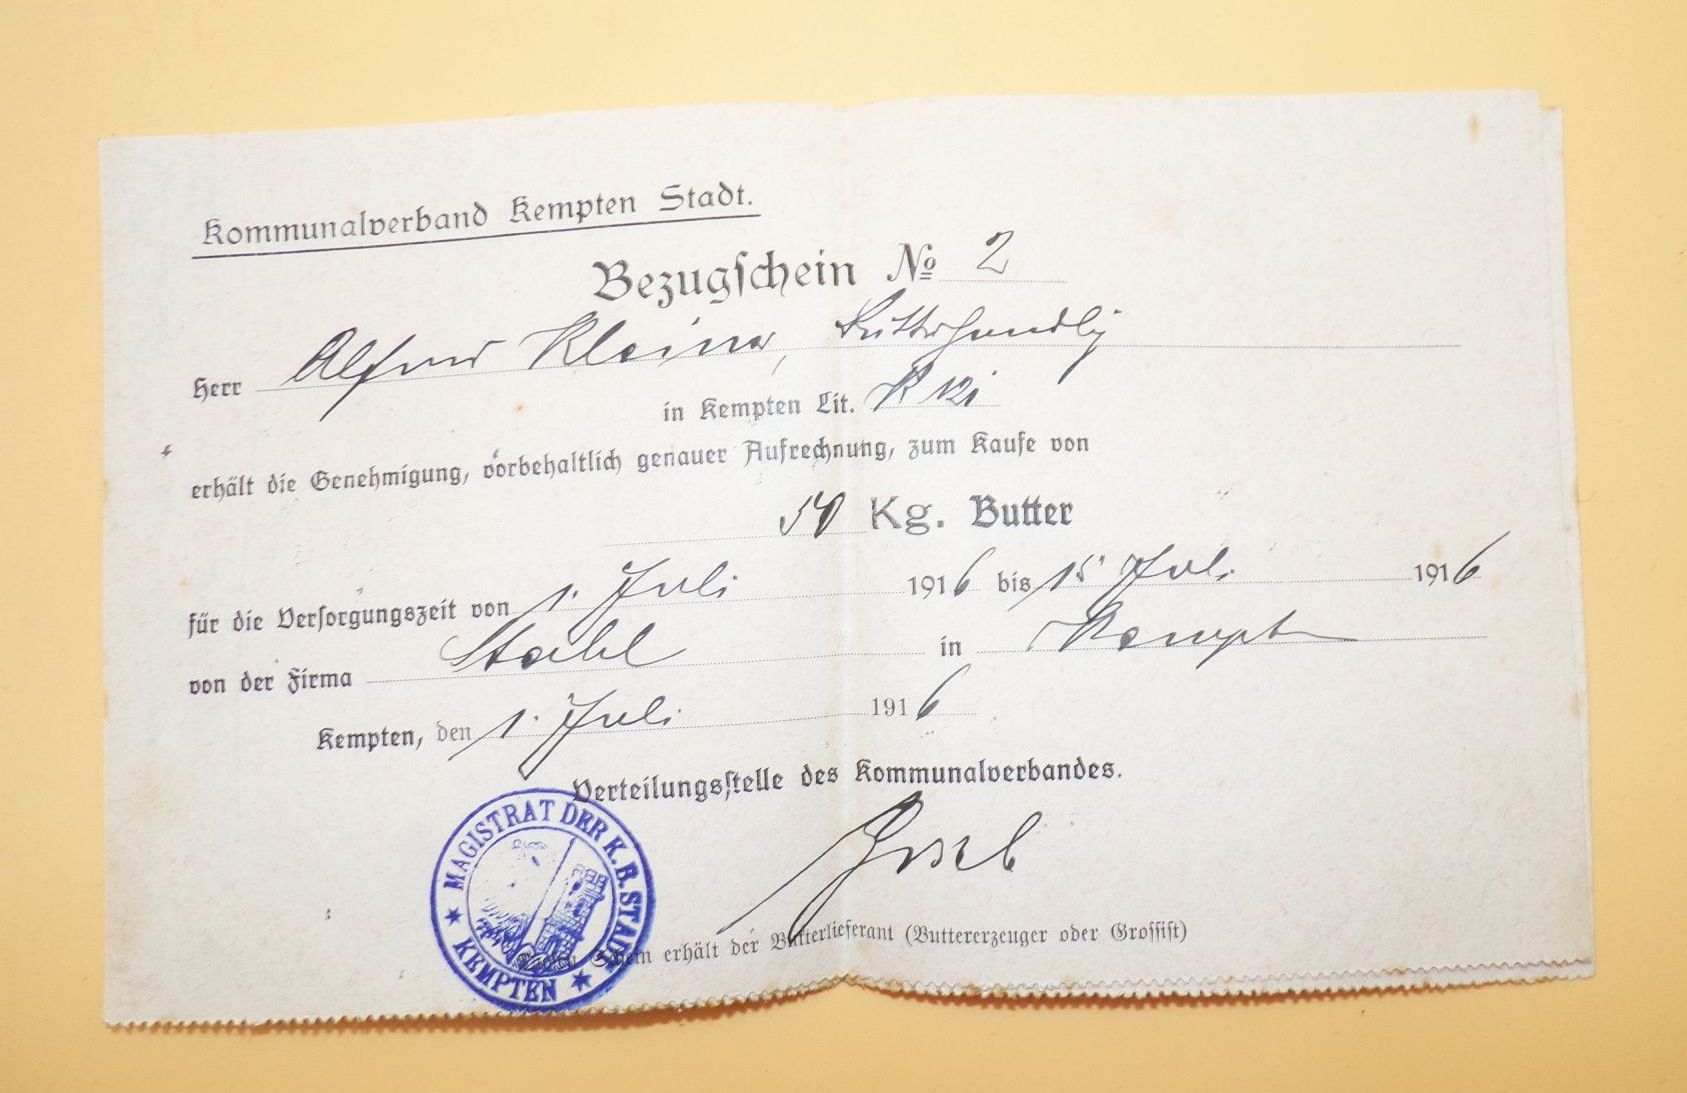 Kommunalverband Kempten Stadt.
Bezugschein № 2
Herr Alfred Kleiner, Butterhandlg
in Kempten Lit. K 12i
erhält die Genehmigung, vorbehaltlich genauer Aufrechnung, zum Kaufe von
50 Kg. Butter
für die Versorgungszeit von 1. Juli 1916 bis 15 Juli 1916
von der Firma Stahl in Kempten
Kempten, den 1. Juli 1916
Verteilungsstelle des Kommunalverbandes.
MAGISTRAT DER K. B. STADT KEMPTEN
Diesen Schein erhält der Butterlieferant (Buttererzeuger oder Grossist)